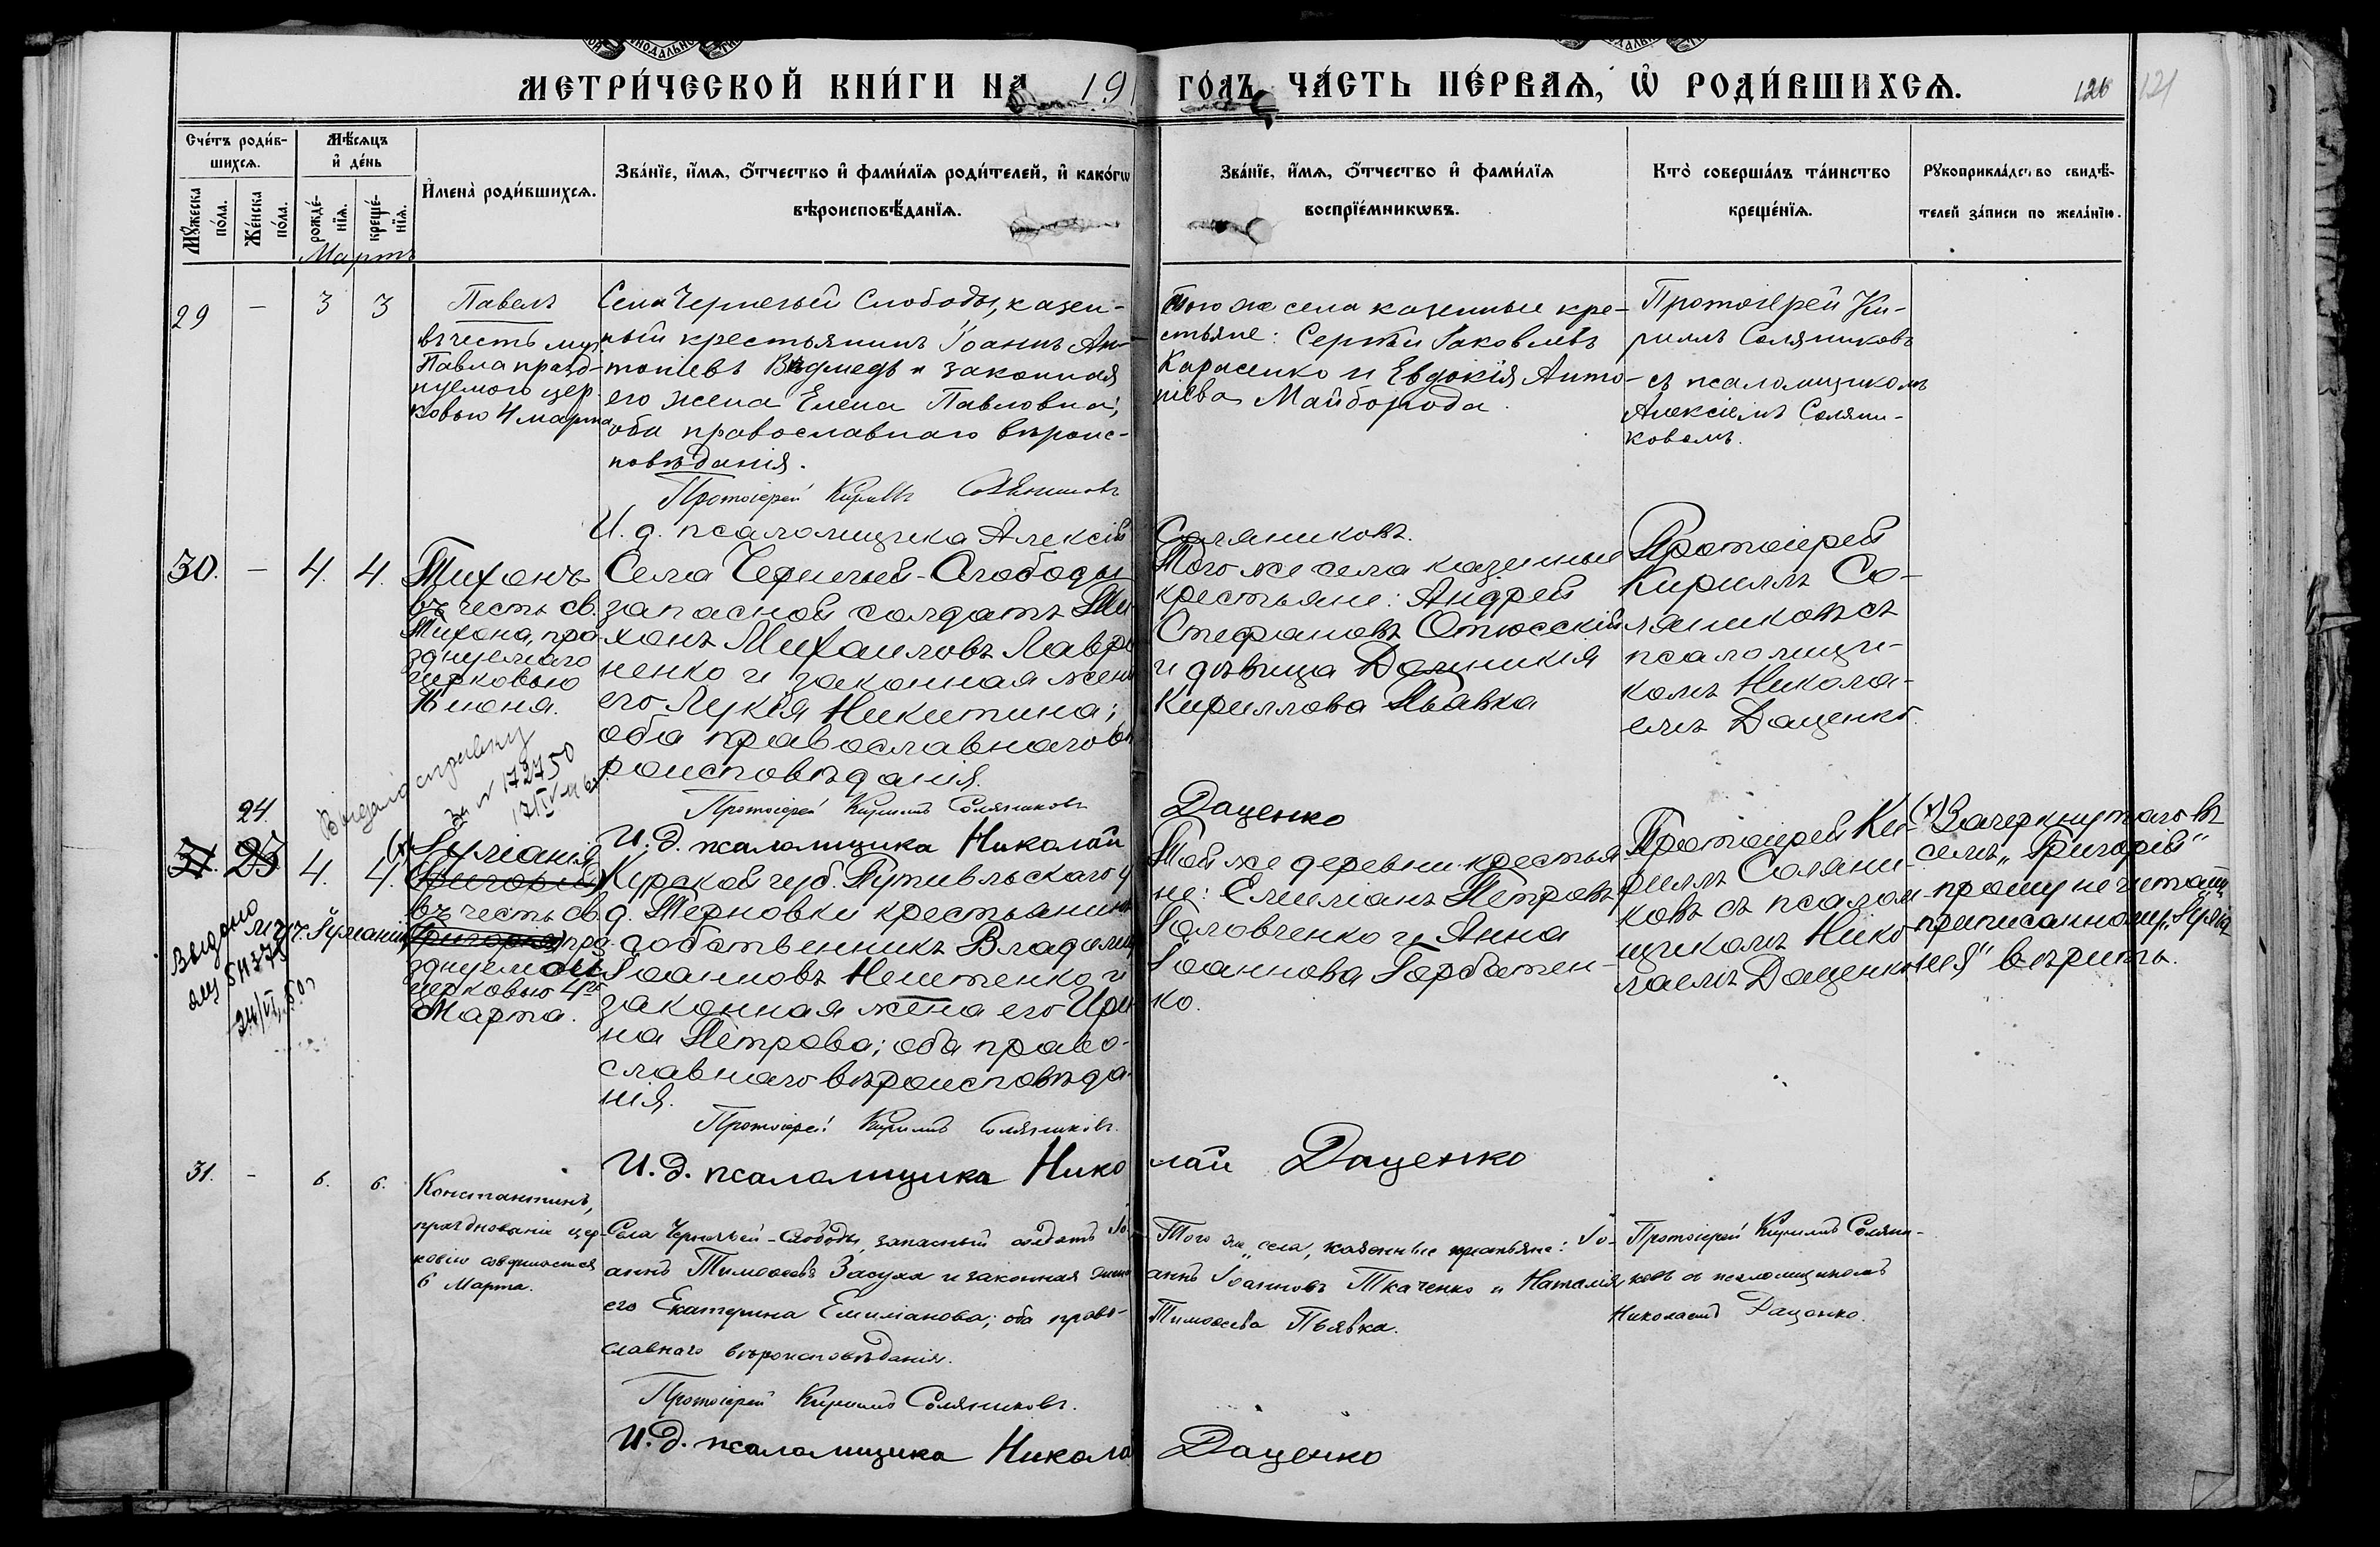 МЕТРИ́ЧЕСКОЙ КНИ́ГИ НА 191 ГО́ДЪ, ЧА́СТЬ ПЕ́РВАѦ, Ѡ҆ РОДИ́ВШИХСѦ. 126 121
Сче́тъ роди́в-
шихсѧ.
Мѣ́сѧцъ
и҆ де́нь
Мꙋ́жеска по́ла.
Же́нска по́ла.
рожде́-
нїѧ.
креще́-
нїѧ.
И҆мена̀ роди́вшихсѧ.
Зва́нїе, и҆́мѧ, ѻ҆́тчество и҆ фами́лїѧ роди́телей, и҆ како́гѡ
вѣроисповѣ́данїѧ.
Зва́нїе, и҆́мѧ, ѻ҆́тчество и҆ фами́лїѧ
воспрїе́мникѡвъ.
Кто̀ соверша́лъ та́инство
креще́нїѧ.
Рꙋкоприкла́дство свидѣ́-
телей за́писи по жела́нїю.
Мартъ
29 — 3 3
Павелъ
въ честь муч.
Павла празд-
нуемого цер-
ковью 4 марта
Села Чернечьей Слободы, казен-
ный крестьянинъ Іоаннъ Ан-
тоніевъ Вѣдмедь и законная
его жена Елена Павловна;
оба православнаго вѣроис-
повѣданія.
Протоіерей Кириллъ Соляниковъ
И. д. псаломщика Алексій Соляниковъ.
Того же села казенные кре-
стьяне: Сергѣй Іаковлевъ
Карасенко и Евдокія Анто-
ніева Майборода.
Протоіерей Ки-
риллъ Соляниковъ
съ псаломщикомъ
Алексіемъ Соляни-
ковымъ.
30. — 4. 4.
Тихонъ
въ честь св.
Тихона, пра-
зднуемаго
церковью
16 июна.
Села Чернечьей-Слободы
запасной солдатъ Ти-
хонъ Михаиловъ Лаври
ненко и законная жена
его Лукія Никитина;
оба православнаго вѣ
роисповѣданія.
Протоіерей Кириллъ Соляниковъ
И. д. псаломщика Николай Даценко
Того же села казенные
крестьяне: Андрей
Стефановъ Отюсскій
и дѣвица Домникія
Кириллова Пьавка
Протоіерей
Кириллъ Со-
ляниковъ съ
псаломщи-
комъ Никола-
емъ Даценко.
Выдана справку
за N 172750
17/IV
24
31. 25 4. 4.
(х) Іуліанія
(Григорій)
въ честь св.
муч. Іуліаніи
(Григорія) пра-
зднуемои
церковью 4го
Марта.
Выдано
24/VI 50г
Курской губ. Путивльскаго у
д. Терновки крестьянинъ
собственникъ Владимір
Іоанновъ Нештенко и
законная жена его Ири
на Петрова; оба право-
славнаго вѣроисповѣда-
нія.
Протоіерей Кириллъ Соляниковъ.
И. д. псаломщика Николай Даценко
Той же деревни крестья-
не: Емиліанъ Петровъ
Головченко и Анна
Іоаннова Горбатен-
ко.
Протоіерей Ки-
риллъ Соляни-
ковъ съ псалом-
щикомъ Нико-
лаемъ Даценко
(х) Зачеркнутаго въ
семъ „Григорій"
прошу не читать
приписанному „Іуліа-
нія" вѣрить.
31. - 6. 6.
Константинъ,
празднованіе цер-
ковію совершается
6 Марта.
Села Чернечьей-Слободы, запасный солдатъ Іо-
аннъ Тимоѳеевъ Засуха и законная жена
его Екатерина Емиліанова; оба право-
славнаго вѣроисповѣданія.
Протоіерей Кириллъ Соляниковъ.
И. д. псаломщика Никола Даценко
Того же села, казенные крестьяне: Іо-
аннъ Іоанновъ Ткаченко и Наталія
Тимоѳеева Пьявка.
Протоіерей Кириллъ Соляни-
ковъ съ псаломщикомъ
Николаемъ Даценко.